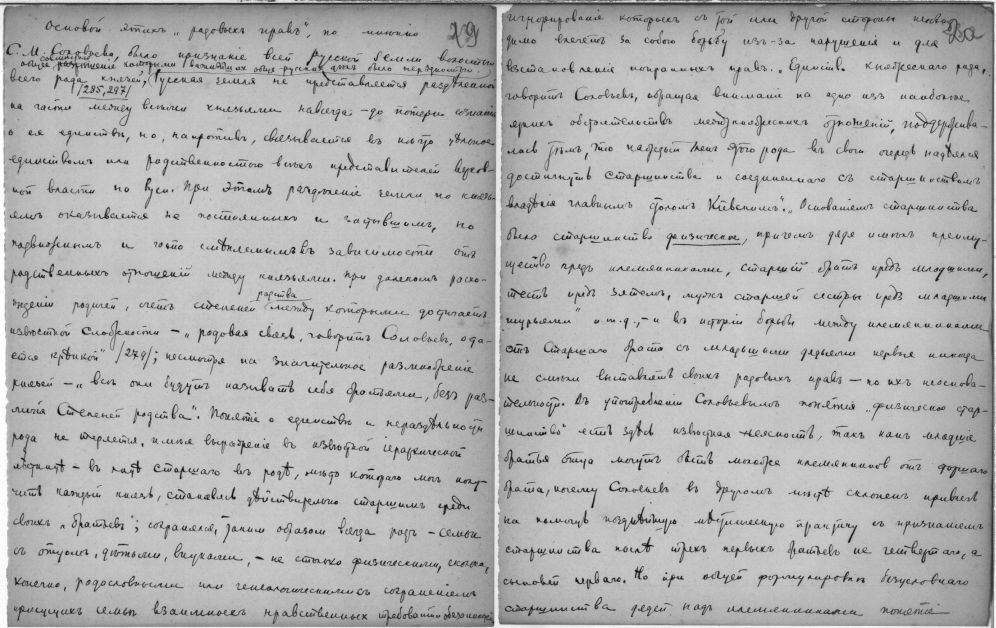 Основой этихъ "родовыхъ правъ", по мнѣнію
29
С.М. Соловьева, было признаніе всей Русской земли волостью
общее
всего рода князей; Русская земля не представляется раздѣленной
/295,297/
на части между всѣми князьями навсегда – до потери сознанія
о ея единствѣ, но, напротивъ, связывается въ нѣчто цѣльное
единствомъ или родственностью всѣхъ представителей верхов-
ной власти на Руси. При этомъ раздѣленіе земли по князь-
ямъ оказывается не постояннымъ и застывшимъ, но
подвижнымъ и часто смѣняемымъ въ зависимости отъ
родственныхъ отношеній между князьями. При далекомъ расхо-
жденіи родичей, счетъ степеней родства между которыми достигаетъ
извѣстной сложности – "родовая связь, говоритъ Соловьевъ, оста-
ется крѣпкой" /279/; несмотря на значительное размноженіе
князей – "всѣ они будутъ называть себя братьями, безъ раз-
личія степеней родства". Понятіе о единствѣ и нераздѣльности
рода не теряется, имѣя выраженіе въ извѣстной іерархической
лѣстницѣ – въ лицѣ старшаго въ родѣ, мѣсто котораго могъ полу-
чить каждый князь, становясь дѣйствительно старшимъ среди
своихъ "братьевъ"; сохранялся, такимъ образомъ всегда родъ – семья
съ отцомъ, дѣтьми, внуками, – не столько физическими, сколько,
конечно, родословными или генеалогическими съ сохраненіемъ
присущихъ семьѣ взаимныхъ нравственныхъ требованій и обязанностей,
игнорированіе которыхъ съ той или другой стороны необхо-
димо влечетъ за собою борьбу изъ-за нарушенія и для
возстановленія попранныхъ правъ. "Единство княжескаго рода,
говоритъ Соловьевъ, обращая вниманіе на одно изъ наиболѣе
яркихъ обстоятельствъ междукняжескихъ отношеній, поддержива-
лось тѣмъ, что каждый членъ этого рода въ свою очередь надѣялся
достигнуть старшинства и соединеннаго съ старшинствомъ
владѣнія главнымъ столомъ Кіевскимъ". "Основаніемъ старшинства
было старшинство физическое, причемъ дядя имѣлъ преиму-
щество предъ племянниками, старшій братъ предъ младшими,
тесть предъ зятемъ, мужъ старшей сестры предъ младшими
шурьями" и т.д., – и въ исторіи борьбы между племянниками
отъ старшаго брата съ младшими дядьями первые никогда
не смѣли выставлять своихъ родовыхъ правъ – по ихъ неоснова-
тельности. Въ употребленіи Соловьевымъ понятія "физическое стар-
шинство" есть здѣсь извѣстная неясность, такъ какъ младшіе
братья отца могутъ быть моложе племянниковъ отъ старшаго
брата, почему Соловьевъ въ другомъ мѣстѣ склоненъ привлечь
на помощь позднѣйшую мѣстническую практику съ признаніемъ
старшинства послѣ трехъ первыхъ братьевъ не четвертаго, а
сыновей перваго. Но при общей формулировкѣ безусловнаго
старшинства дядей надъ племянниками понятіе